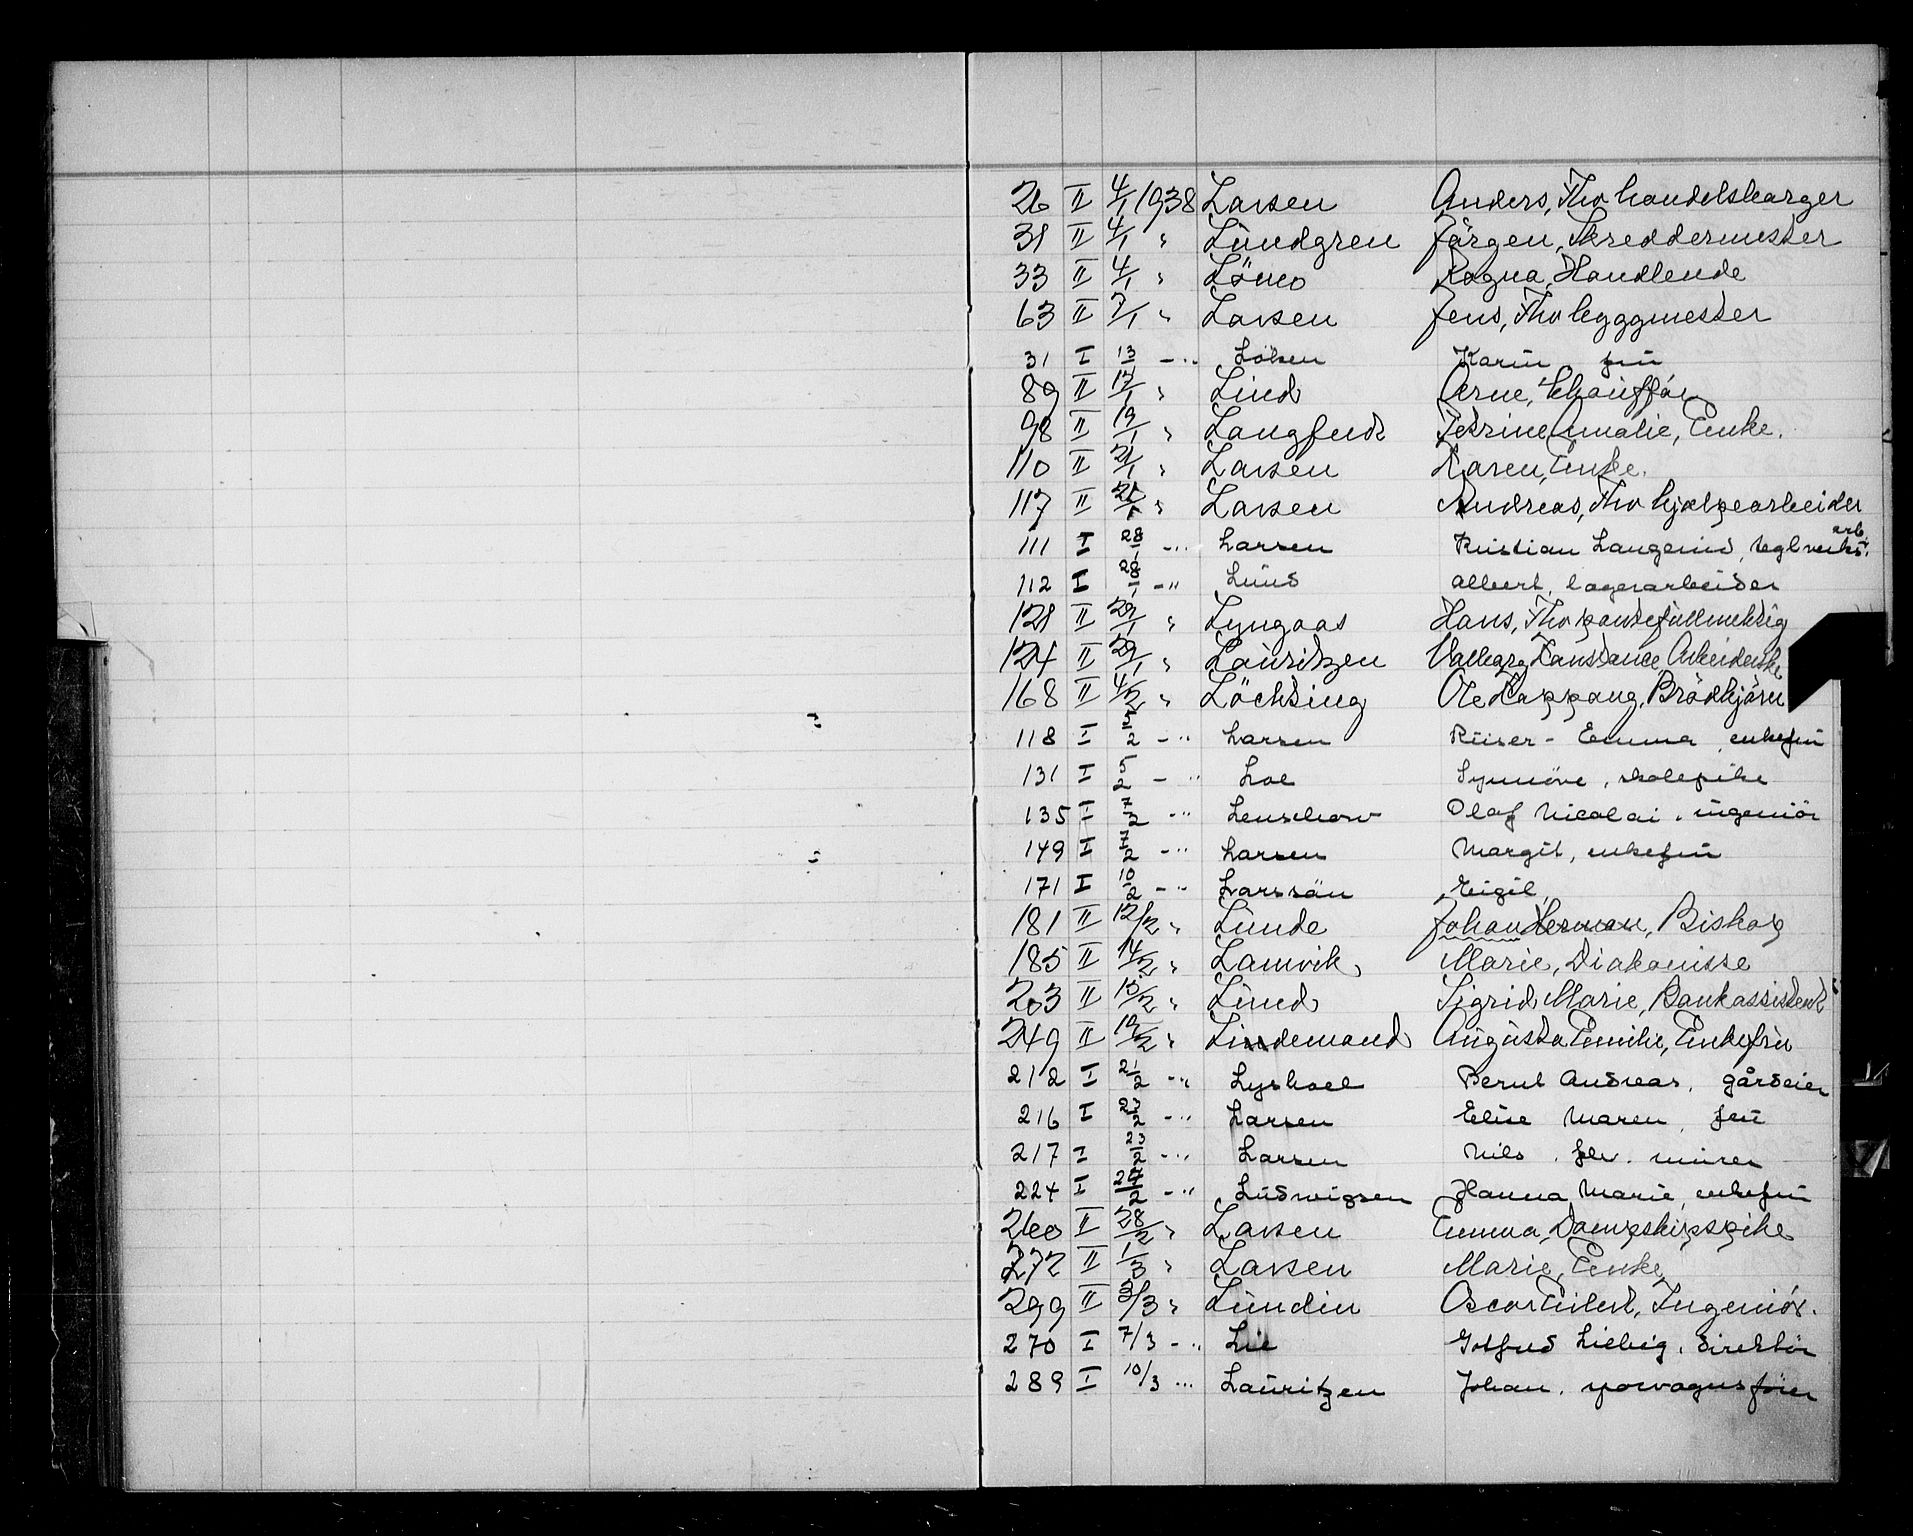 26 II 4/1 1938 Larsen Anders, Fhv handelsborger
31 II 4/1 " Lundgren Jörgen, Skreddermester
33 II 4/1 " Lömo Ragna, Handlende
63 II 7/1 " Larsen Jens, Fhv byggmester
31 I 13/1 -"- Löken Karin fru
89 II 17/1 " Lind Arne, Chaufför
98 II 19/1 " Langfeldt Petrine Amalie, Enke.
110 II 21/1 " Larsen Karen, Enke.
117 II 25/1 " Larsen Andreas, Fhv hjelpearbeider
111 I 28/1 -"- Larsen Kristian Langerud, teglverks arb.
112 I 28/1 -"- Lund Albert, lagerarbeider
121 II 29/1 " Lyngaas Hans, Fhv pantefullmektig
124 II 29/1 " Lauritzen Valborg Constance, Arbeiderske
168 II 4/2 " Löchting Ole Kappang, Brödkjörer
118 I 2 -"- Larsen Riiser - Emma, enkefru
131 I 5/2 -"- Loe Synnöve, skolepike
135 I 7/2 -"- Lenschow Olaf Nicolai, ingeniör
149 I 7/2 -"- Larsen Margit, enkefru
171 I 10/2 -"- Larssön Eigil,
181 II 12/2 " Lunde Johan Herman, Biskop
185 II 14/2 " Lamvik, Marie, Diakonisse
203 II 15/2 " Lund Sigrid Marie, Bankassistent
249 II 19/2 " Lindemand Augusta Emilie, Enkefru
212 I 21/2 -"- Lyshoel Bernt Andreas, gårdeier
216 I 23/2 -"- Larsen Elise Maren, fru
217 I 23/2 -"- Larsen Nils, fhv. murer
224 I 24/2 -"- Ludwigsen Hanna Marie, enkefru
260 II 28/2 " Larsen Emma, Dampskipspike
272 II 1/3 " Larsen Marie, Enke
299 II 3/3 " Lundin Oscar Eilert, Ingeniör.
270 I 7/3 -"- Lie Gotfred Liebig, direktör
289 I 10/3 -"- Lauritzen Johan, sporvognsförer